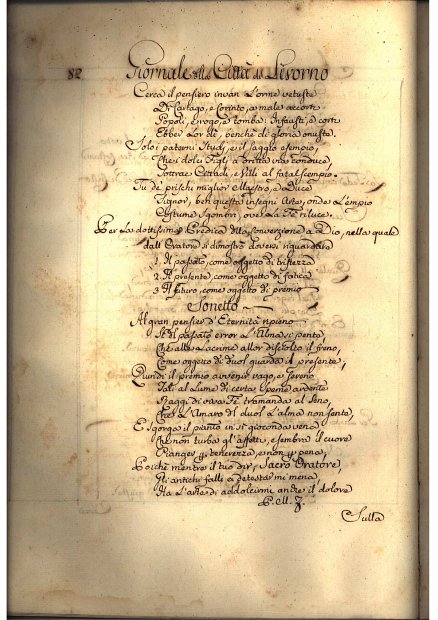 82 Giornale della Città di Livorno
Cerca il pensiero invan l'orme vetuste
Di Cartago, e Corinto, o male accorte
Popoli, e rogo, e tomba. Infausti, e corte
Ebber lor dì, benchè di gloria onuste.
Solo i paterni Studj, e il saggio esempio,
Che i dolci Figlj a dritta via conduce,
Sottrae Cittadi, e Ville al fatal scempio.
Tu de' prischi miglior Maestro, e Duce
Signor, ben questa insegni Arte, onde l'empio
Costume sgombri, ove la Fè riluce.
Per la dottissima Predica della Conversione a Dio, nella quale
dall'Oratore si dimostrò doversi riguardare
1. Il passato, come oggetto di tristezza
2. Il presente, come oggetto di fatica
3. Il futuro, come oggetto di premio
Sonetto
Al gran pensier d'Eternità ripieno
Se del passato error l'Alma si penta,
Che alle lacrime allor disciolto il freno,
Come oggetto di duol guarda il presente,
Quindi il premio avvenir vago, e sereno
Tali al lume di certa speme ardente
Raggi di viva Fè tramanda al seno,
Che l'Amaro del duol l'alma non sente,
E sgorga il pianto in sì gioconda vena
Che non turba gl'affetti, e sembra il cuore
Pianger per tenerezza, e non per pena,
Poichè mentre il tuo dir, Sacro Oratore,
Gli antichi falli a detestar mi mena,
Ha l'arte di addolcirmi anche il dolore
Sulla